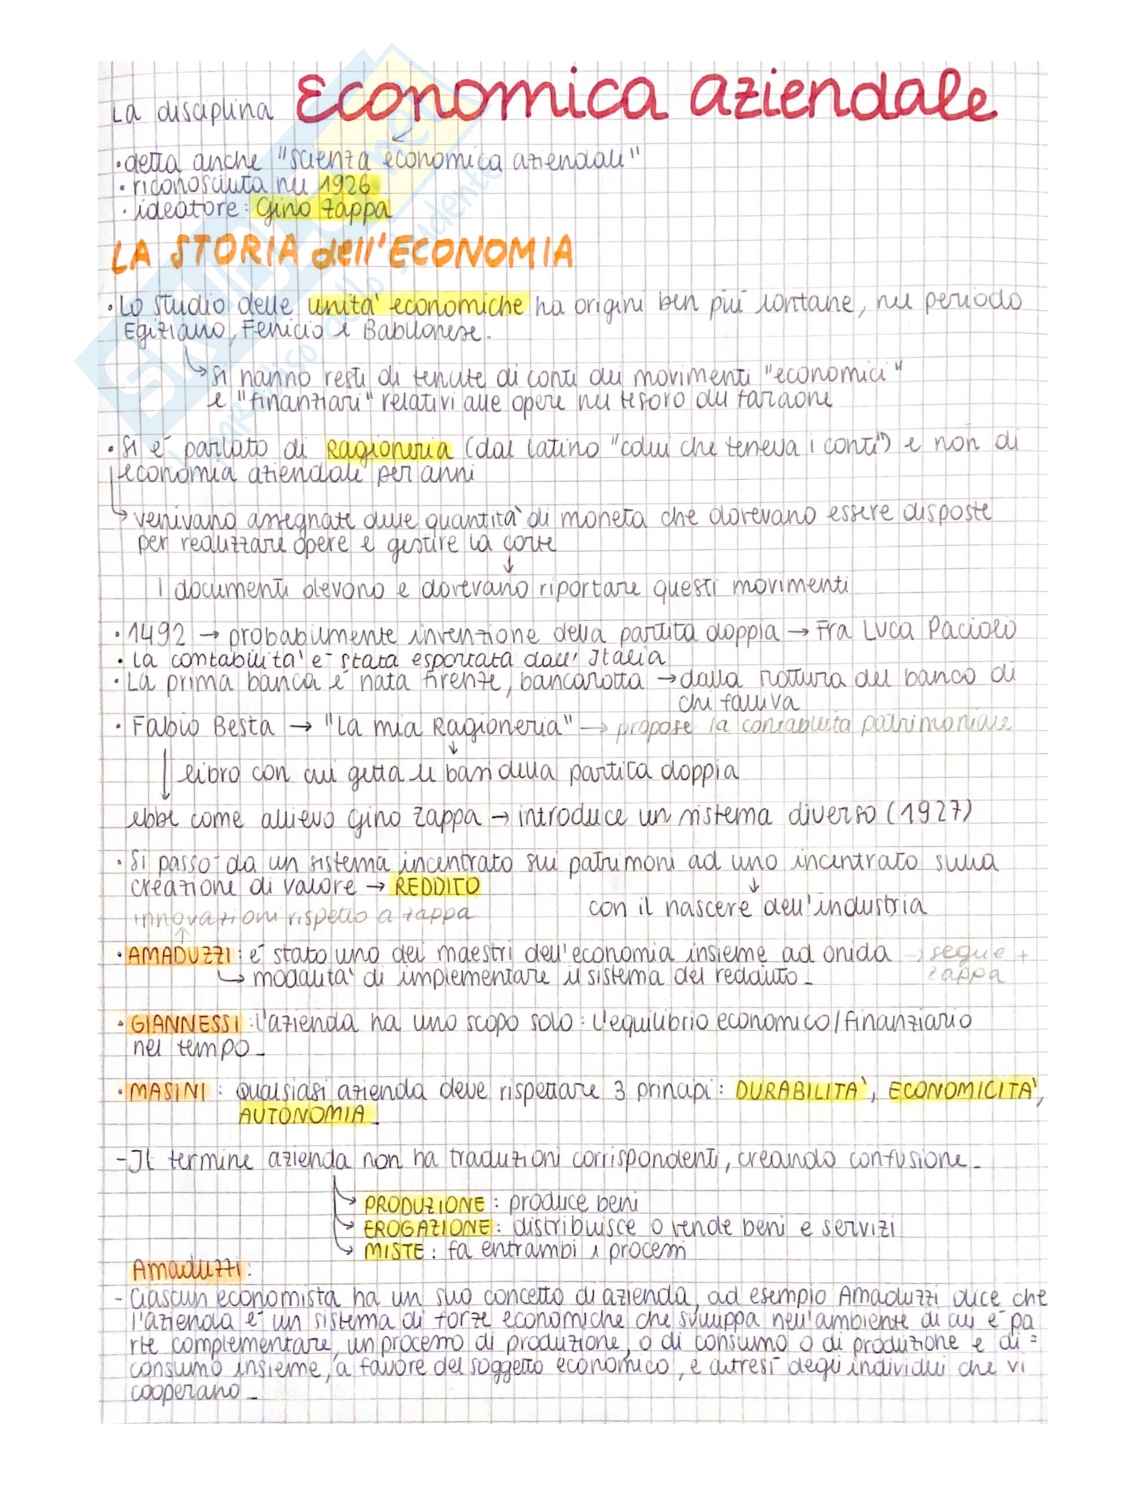 La disciplina Economica aziendale
• detta anche "scienza economica aziendale"
• riconosciuta nel 1926
• ideatore: Gino Zappa
LA STORIA dell'ECONOMIA
• Lo studio delle unità economiche ha origini ben più lontane, nel periodo
Egiziano, Fenicio e Babilonese.
→ si hanno resti di tenute di conti dei movimenti "economici"
e "finanziari" relativi alle opere nel tesoro del faraone
• Si è parlato di Ragioneria (dal latino "colui che teneva i conti") e non di
economia aziendale per anni
→ venivano assegnate delle quantità di moneta che dovevano essere disposte
per realizzare opere e gestire la corte
↓
I documenti devono e dovevano riportare questi movimenti
• 1492 → probabilmente invenzione della partita doppia → Fra Luca Paciolo
• La contabilità è stata esportata dall'Italia
• La prima banca è nata Firenze, bancarotta → dalla rottura del banco di
chi falliva
• Fabio Besta → "La mia Ragioneria" → propose la contabilità patrimoniale
libro con cui getta le basi della partita doppia
ebbe come allievo Gino Zappa → introduce un sistema diverso (1927)
• Si passò da un sistema incentrato sui patrimoni ad uno incentrato sulla
creazione di valore → REDDITO
con il nascere dell'industria
innovazioni rispetto a zappa
• AMADUZZI: è stato uno dei maestri dell'economia insieme ad onida → segue +
zappa
→ modalità di implementare il sistema del reddito.
• GIANNESSI: l'azienda ha uno scopo solo: l'equilibrio economico/finanziario
nel tempo.
• MASINI: qualsiasi azienda deve rispettare 3 principi: DURABILITÀ, ECONOMICITÀ,
AUTONOMIA.
- Il termine azienda non ha traduzioni corrispondenti, creando confusione.
→ PRODUZIONE: produce beni
→ EROGAZIONE: distribuisce o vende beni e servizi
→ MISTE: fa entrambi i processi
Amaduzzi:
- Ciascun economista ha un suo concetto di azienda, ad esempio Amaduzzi dice che
l'azienda è un sistema di forze economiche che sviluppa nell'ambiente di cui è pa
rte complementare, un processo di produzione, o di consumo o di produzione e di =
consumo insieme, a favore del soggetto economico, e altresì degli individui che vi
cooperano.